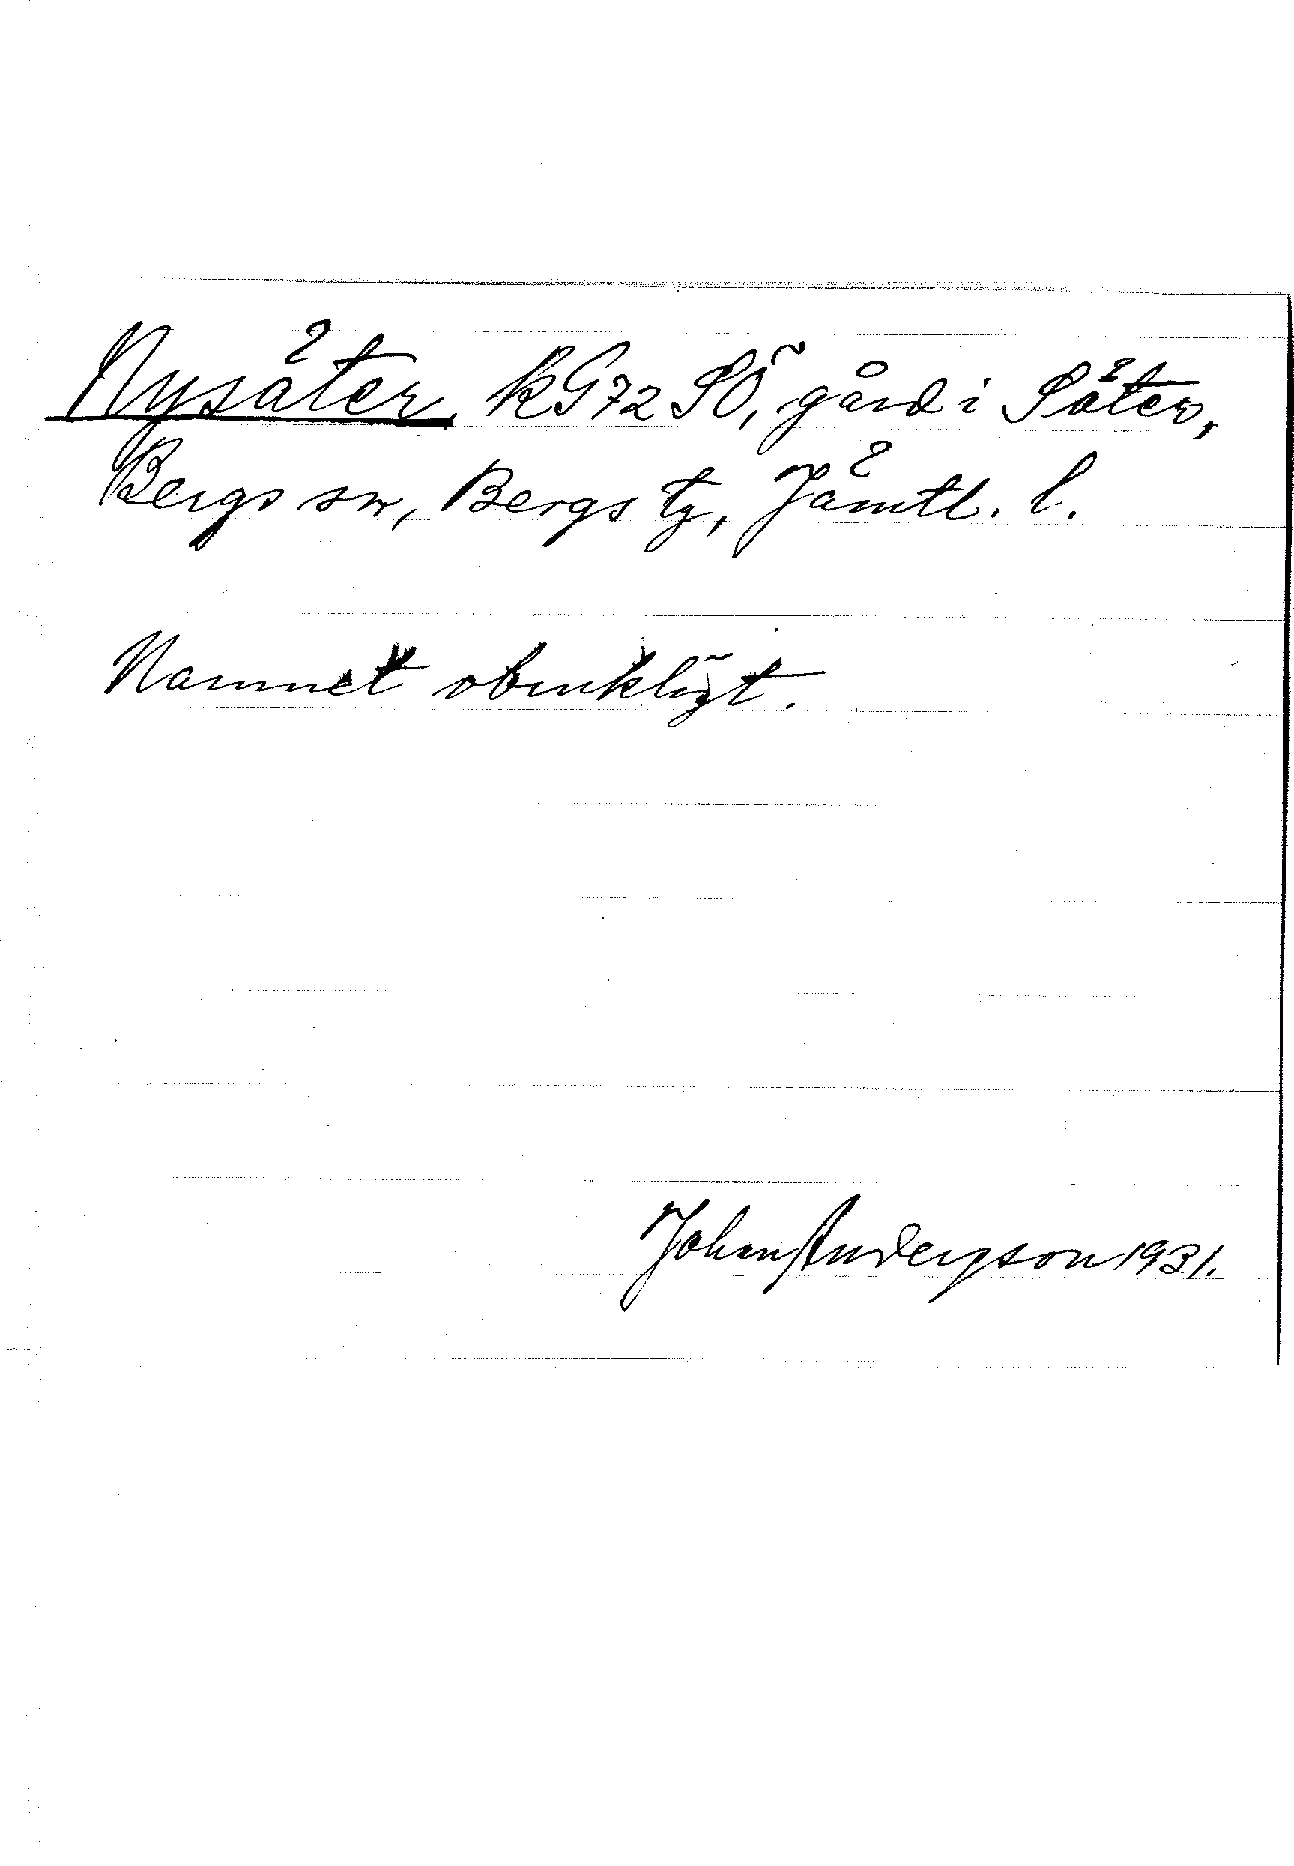 Nysäter, kG72SÖ, gård i Säter,
Bergs sn, Bergs tg, Jämtl. l.
Namnet obrukligt.
Johan Anderson 1931.